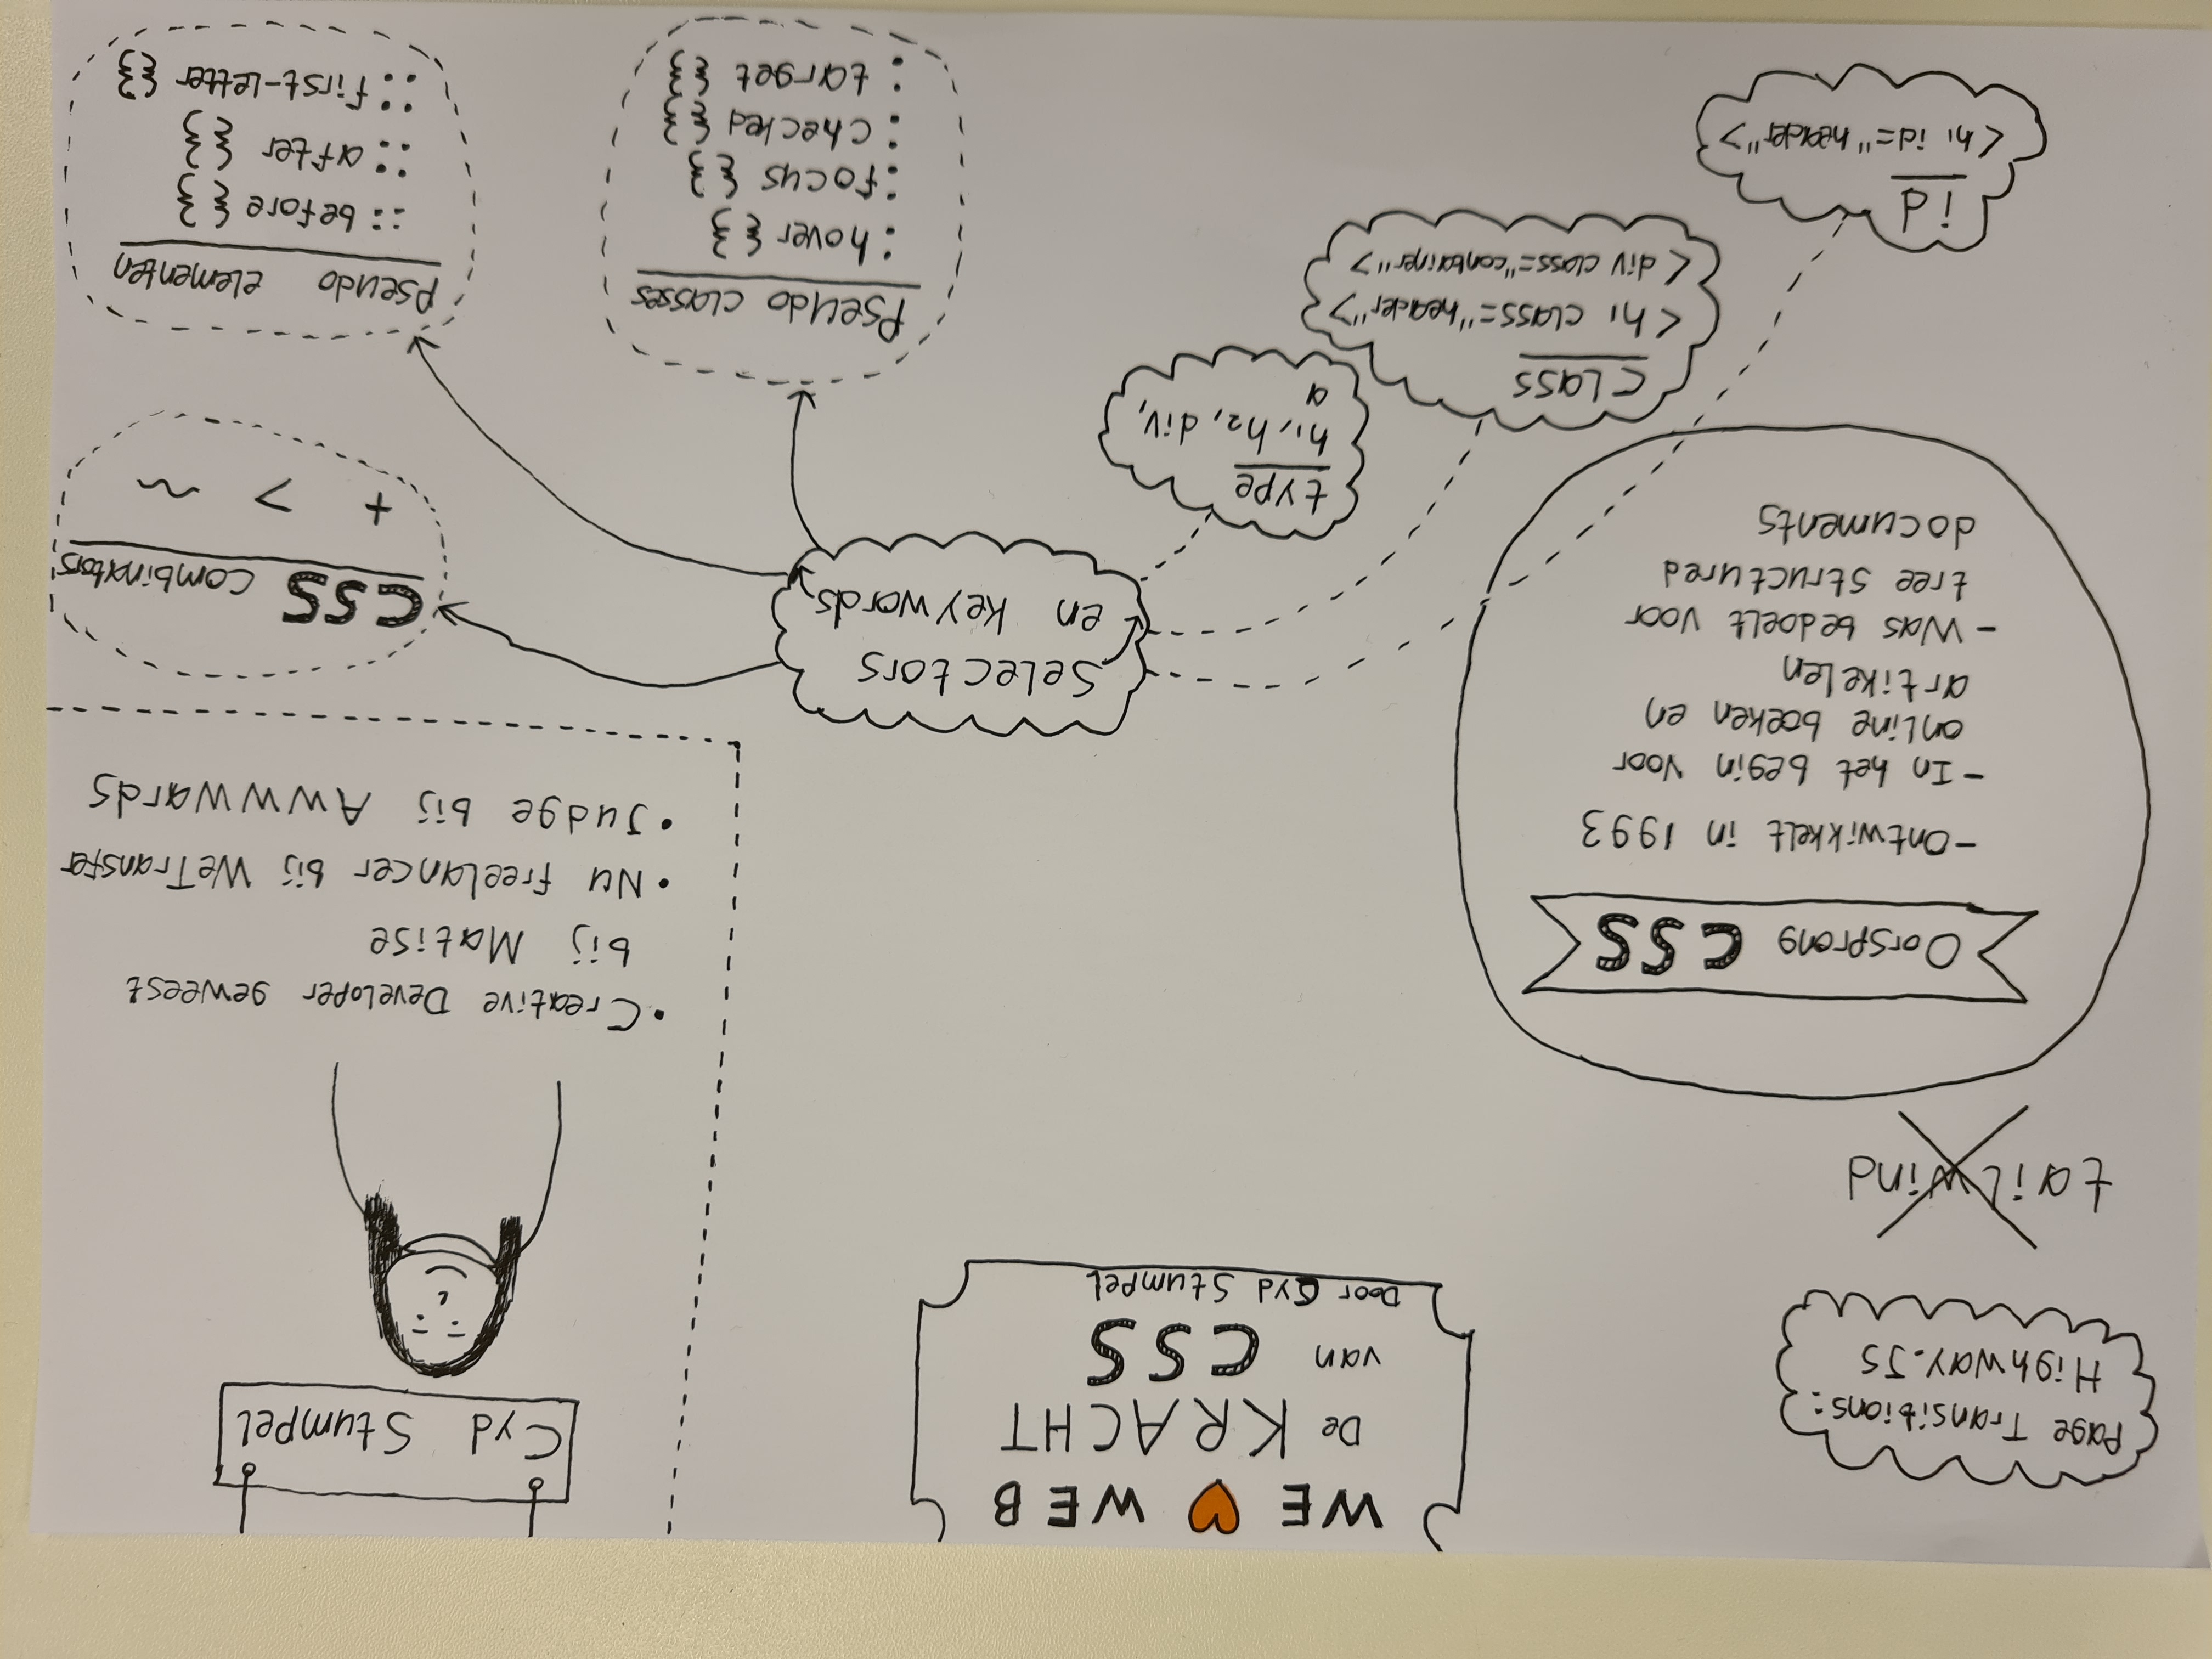 WE ♥ WEB
De KRACHT
van CSS
Door Cyd Stumpel
Page Transitions:
Highway.JS
tailwind
Cyd Stumpel
• Creative Developer geweest
bij Matise
• Nu freelancer bij WeTransfer
• Judge bij Awwwards
Oorsprong CSS
- Ontwikkelt in 1993
- In het begin voor
online boeken en
artikelen
- Was bedoelt voor
tree structured
documents
Selectors
en keywords
type
h1, h2, div,
a
class
<h1 class="header">
<div class="container">
id
<h1 id="header">
CSS combinators
+ > ~
Pseudo classes
:hover {}
:focus {}
:checked {}
:target {}
Pseudo elementen
::before {}
::after {}
::first-letter {}